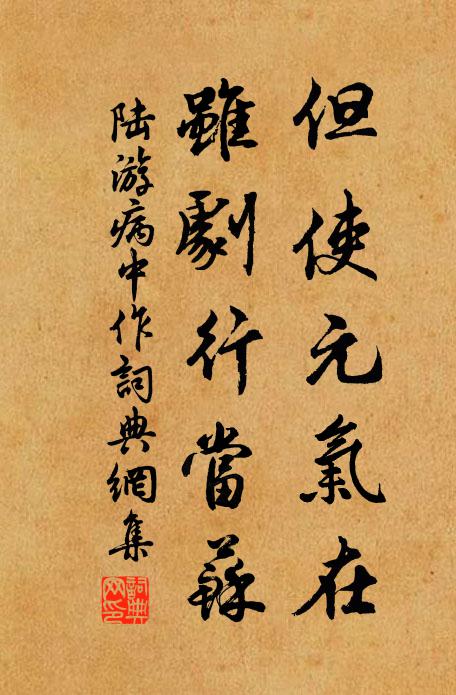 但使元氣在
雖劇行當蘇
陆游病中作詞典網集
詞典網印